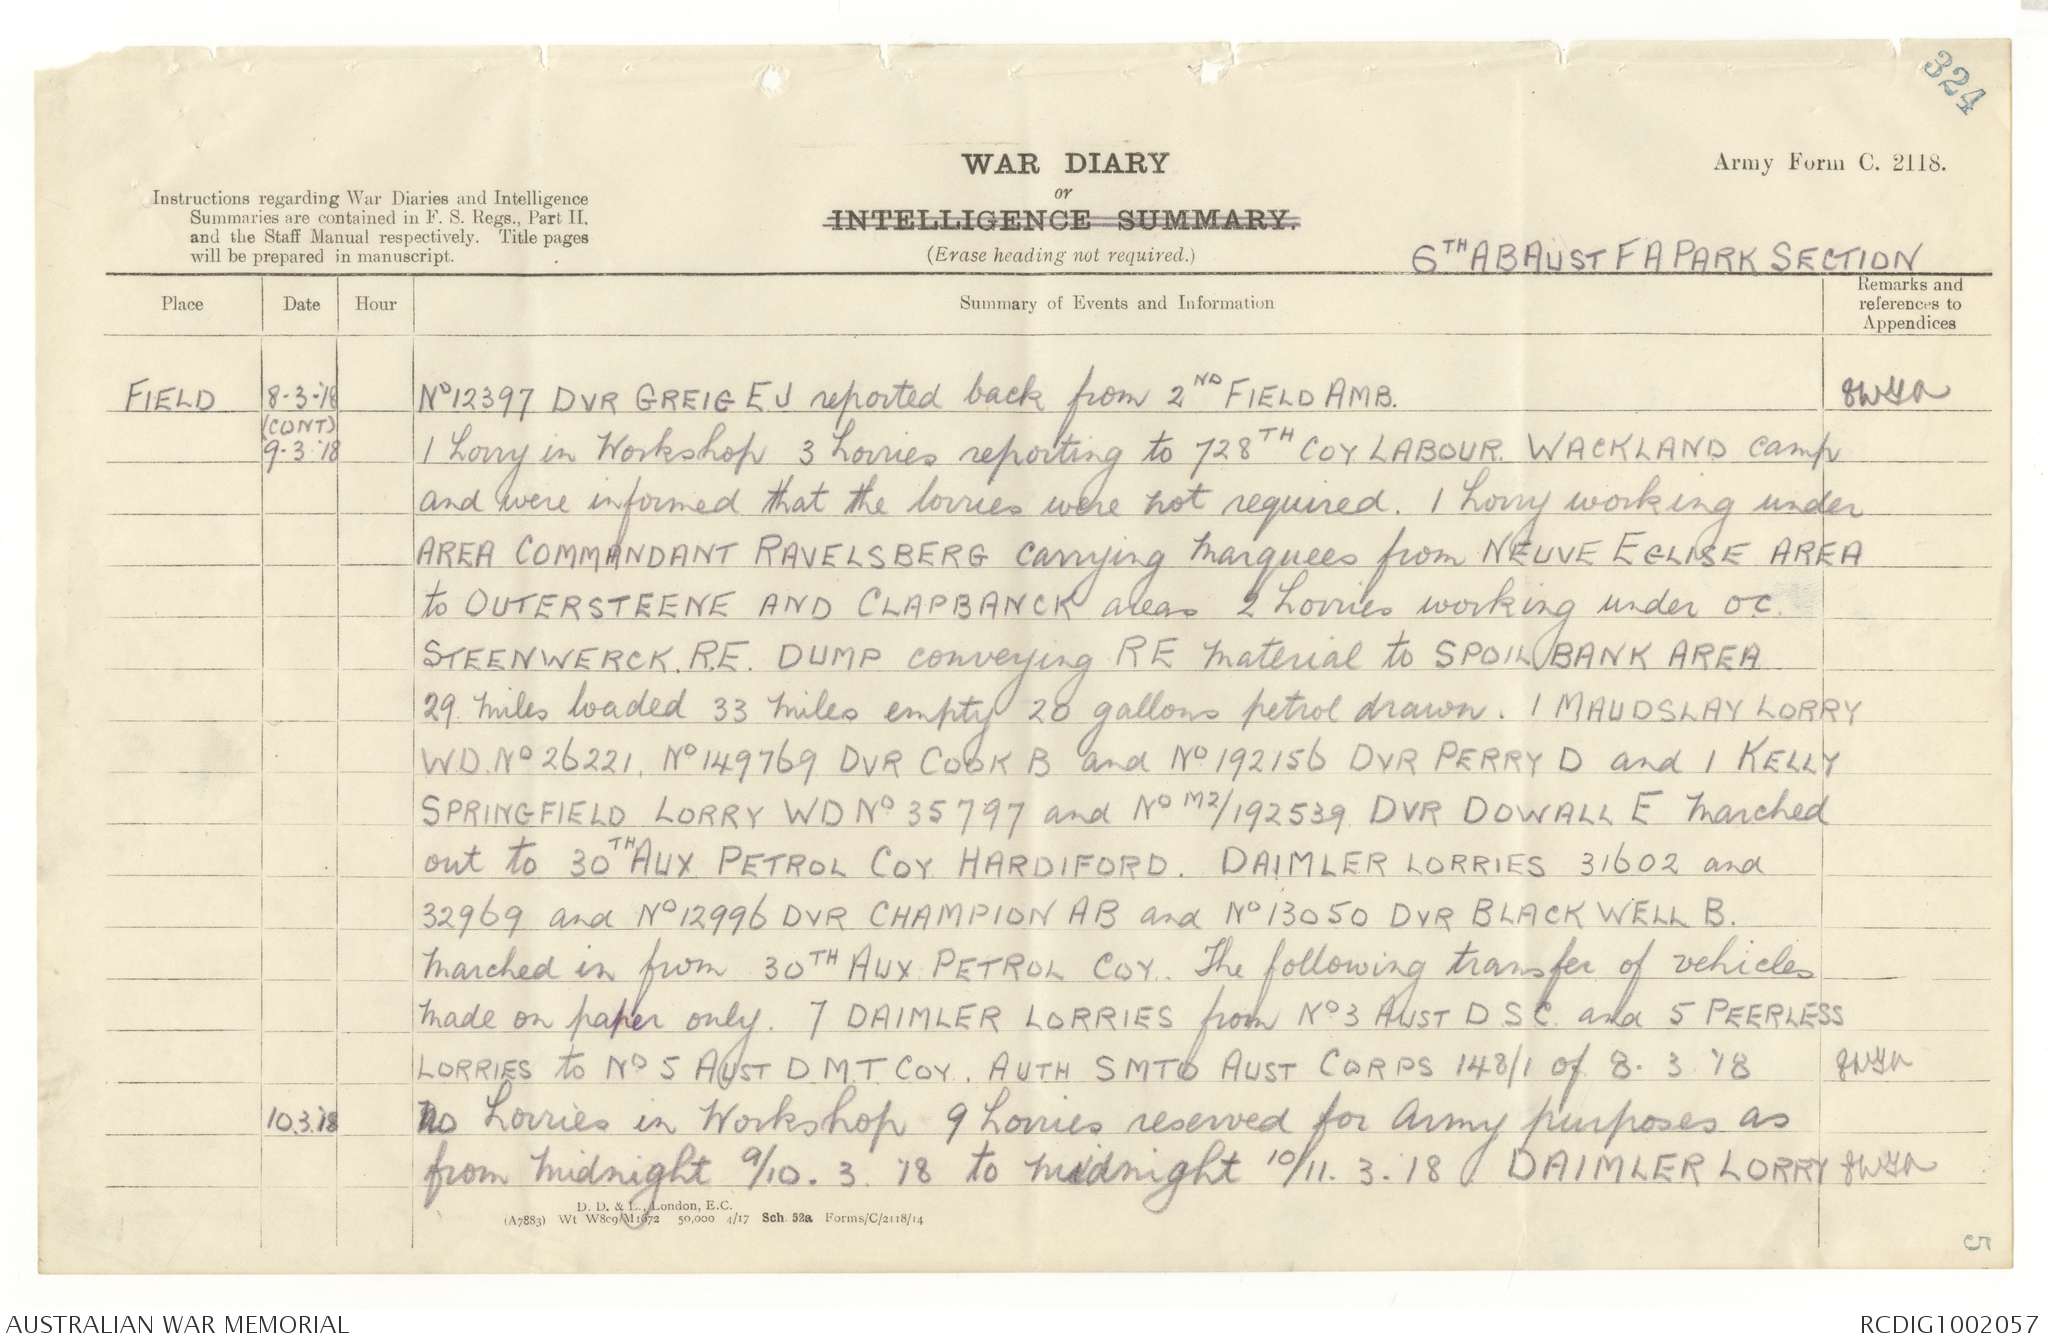 324
WAR DIARY
or
INTELLIGENCE SUMMARY.
(Erase heading not required.)
Army Form C. 2118.
Instructions regarding War Diaries and Intelligence
Summaries are contained in F. S. Regs., Part II,
and the Staff Manual respectively. Title pages
will be prepared in manuscript.
6TH AB AUST F A PARK SECTION
Place Date Hour Summary of Events and Information Remarks and
references to
Appendices
FIELD 8-3-'18 No 12397 DVR GREIG E J reported back from 2ND FIELD AMB.
(CONT)
9-3-'18 1 Lorry in Workshop 3 Lorries reporting to 728TH COY LABOUR. WACKLAND camp
and were informed that the lorries were not required. 1 Lorry working under
AREA COMMANDANT RAVELSBERG carrying Marquees from NEUVE EGLISE AREA
to OUTERSTEENE AND CLAPBANCK areas 2 Lorries working under O.C.
STEENWERCK. R.E. DUMP conveying RE Material to SPOIL BANK AREA
29 Miles loaded 33 Miles empty 20 gallons petrol drawn. 1 MAUDSLAY LORRY
WD. No 26221. No 149769 DVR COOK B and No 192156 DVR PERRY D and 1 KELLY
SPRINGFIELD LORRY WD No 35797 and No M2/192539 DVR DOWALL E Marched
out to 30TH AUX PETROL COY HARDIFORD. DAIMLER LORRIES 31602 and
32969 and No 12996 DVR CHAMPION AB and No 13050 DVR BLACKWELL B.
Marched in from 30TH AUX PETROL COY. The following transfer of vehicles
Made on paper only. 7 DAIMLER LORRIES from No 3 AUST D S C. and 5 PEERLESS
LORRIES to No 5 AUST D.M.T. COY. AUTH SMTO AUST CORPS 148/1 of 8. 3 '18
10.3.'18 No Lorries in Workshop 9 Lorries reserved for Army purposes as
from Midnight 9/10. 3. '18 to Midnight 10/11. 3. '18. DAIMLER LORRY
D. D. & L., London, E.C.
(A7883) Wt W809/M1672 50,000 4/17 Sch. 52a Forms/C/2118/14
5
AUSTRALIAN WAR MEMORIAL
RCDIG1002057